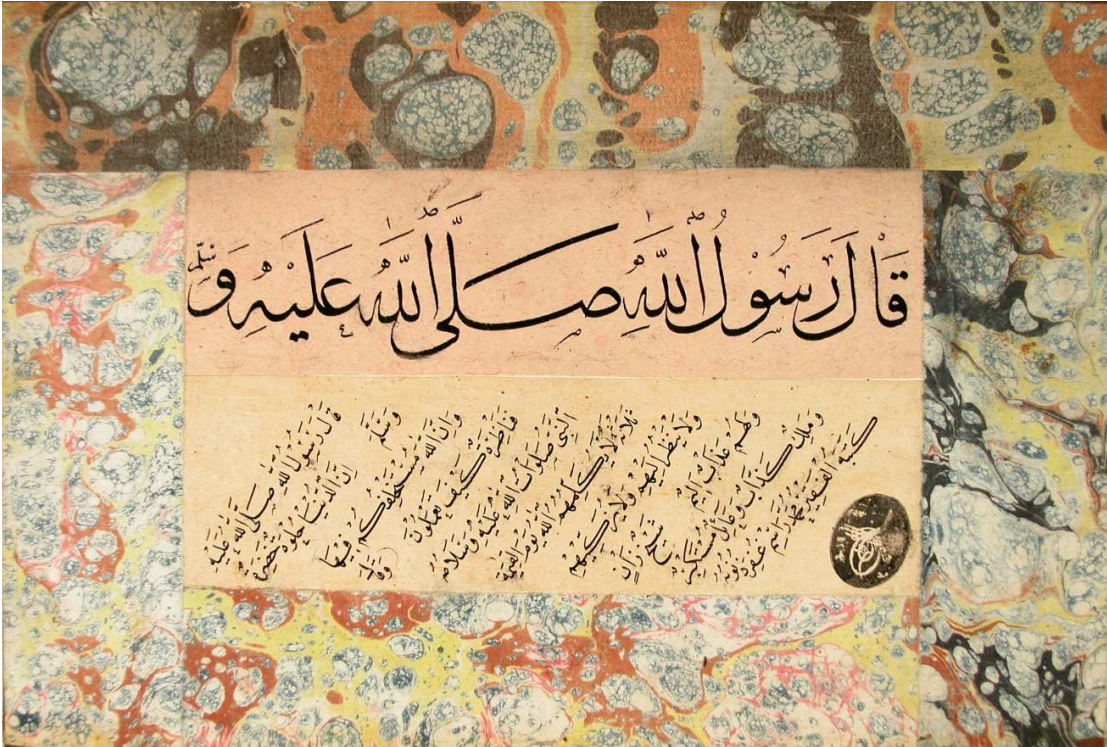 قَالَ رَسُولُ اللهِ صَلَّى اللهُ عَلَيْهِ وَسَلَّم
قال رسول الله صلى الله عليه
وسلم ان الدنيا حلوة خضرة
وان الله مستخلفكم فيها
فناظر كيف تعملون وقال
النبي صلوات الله عليه وسلامه
ثلاثة لا يكلمهم الله يوم القيمة
ولا ينظر اليهم ولا يزكيهم
ولهم عذاب اليم شيخ زان
وملك كذاب وعائل مستكبر
كتبه الفقير محمد راسم
غفر ذنوبه